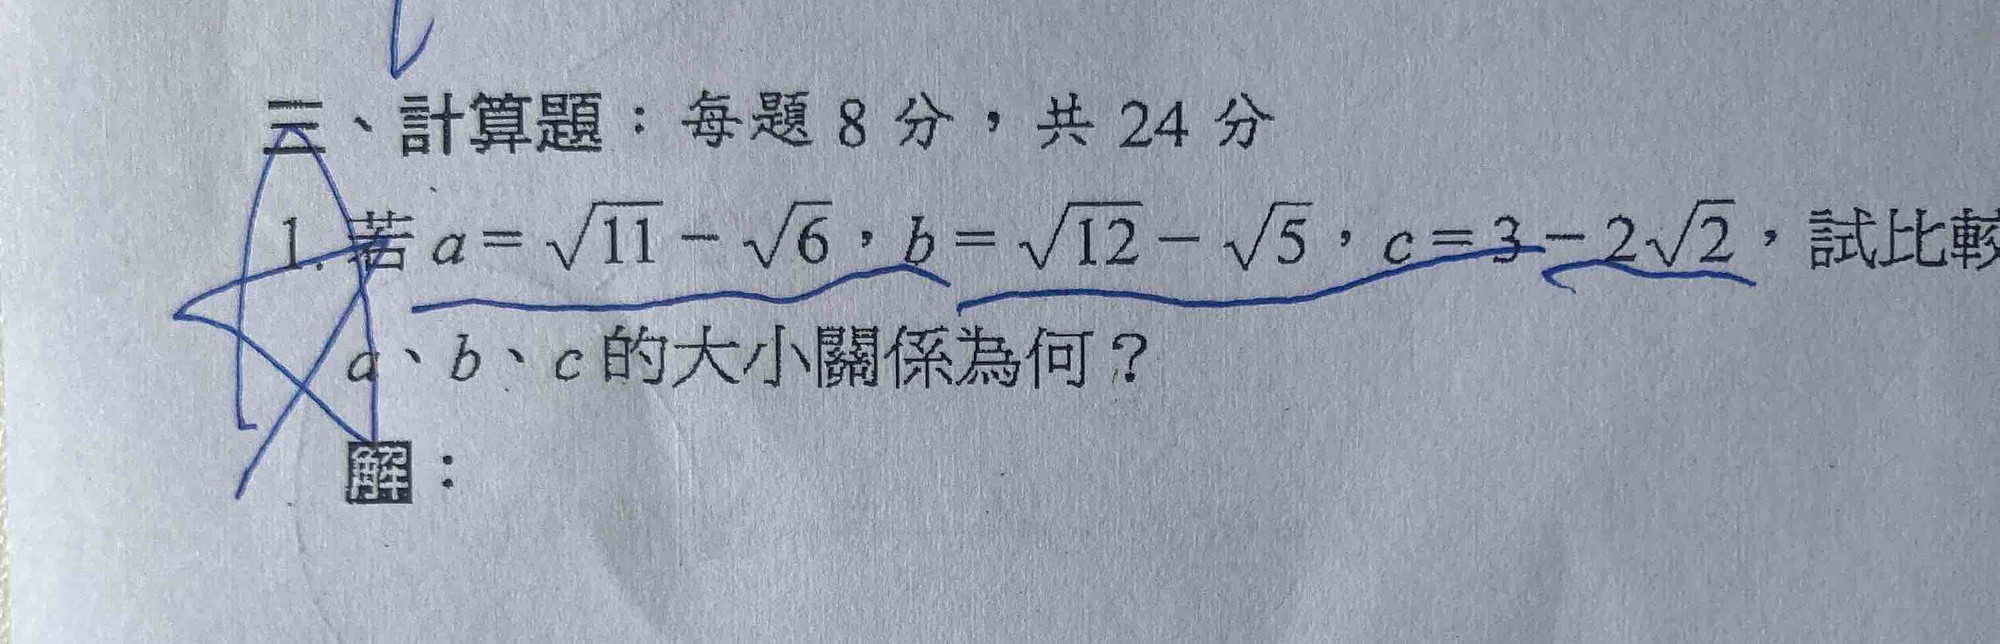 三、計算題：每題 8 分，共 24 分
1. 若 a = √11 − √6，b = √12 − √5，c = 3 − 2√2，試比較
a、b、c 的大小關係為何？
解：